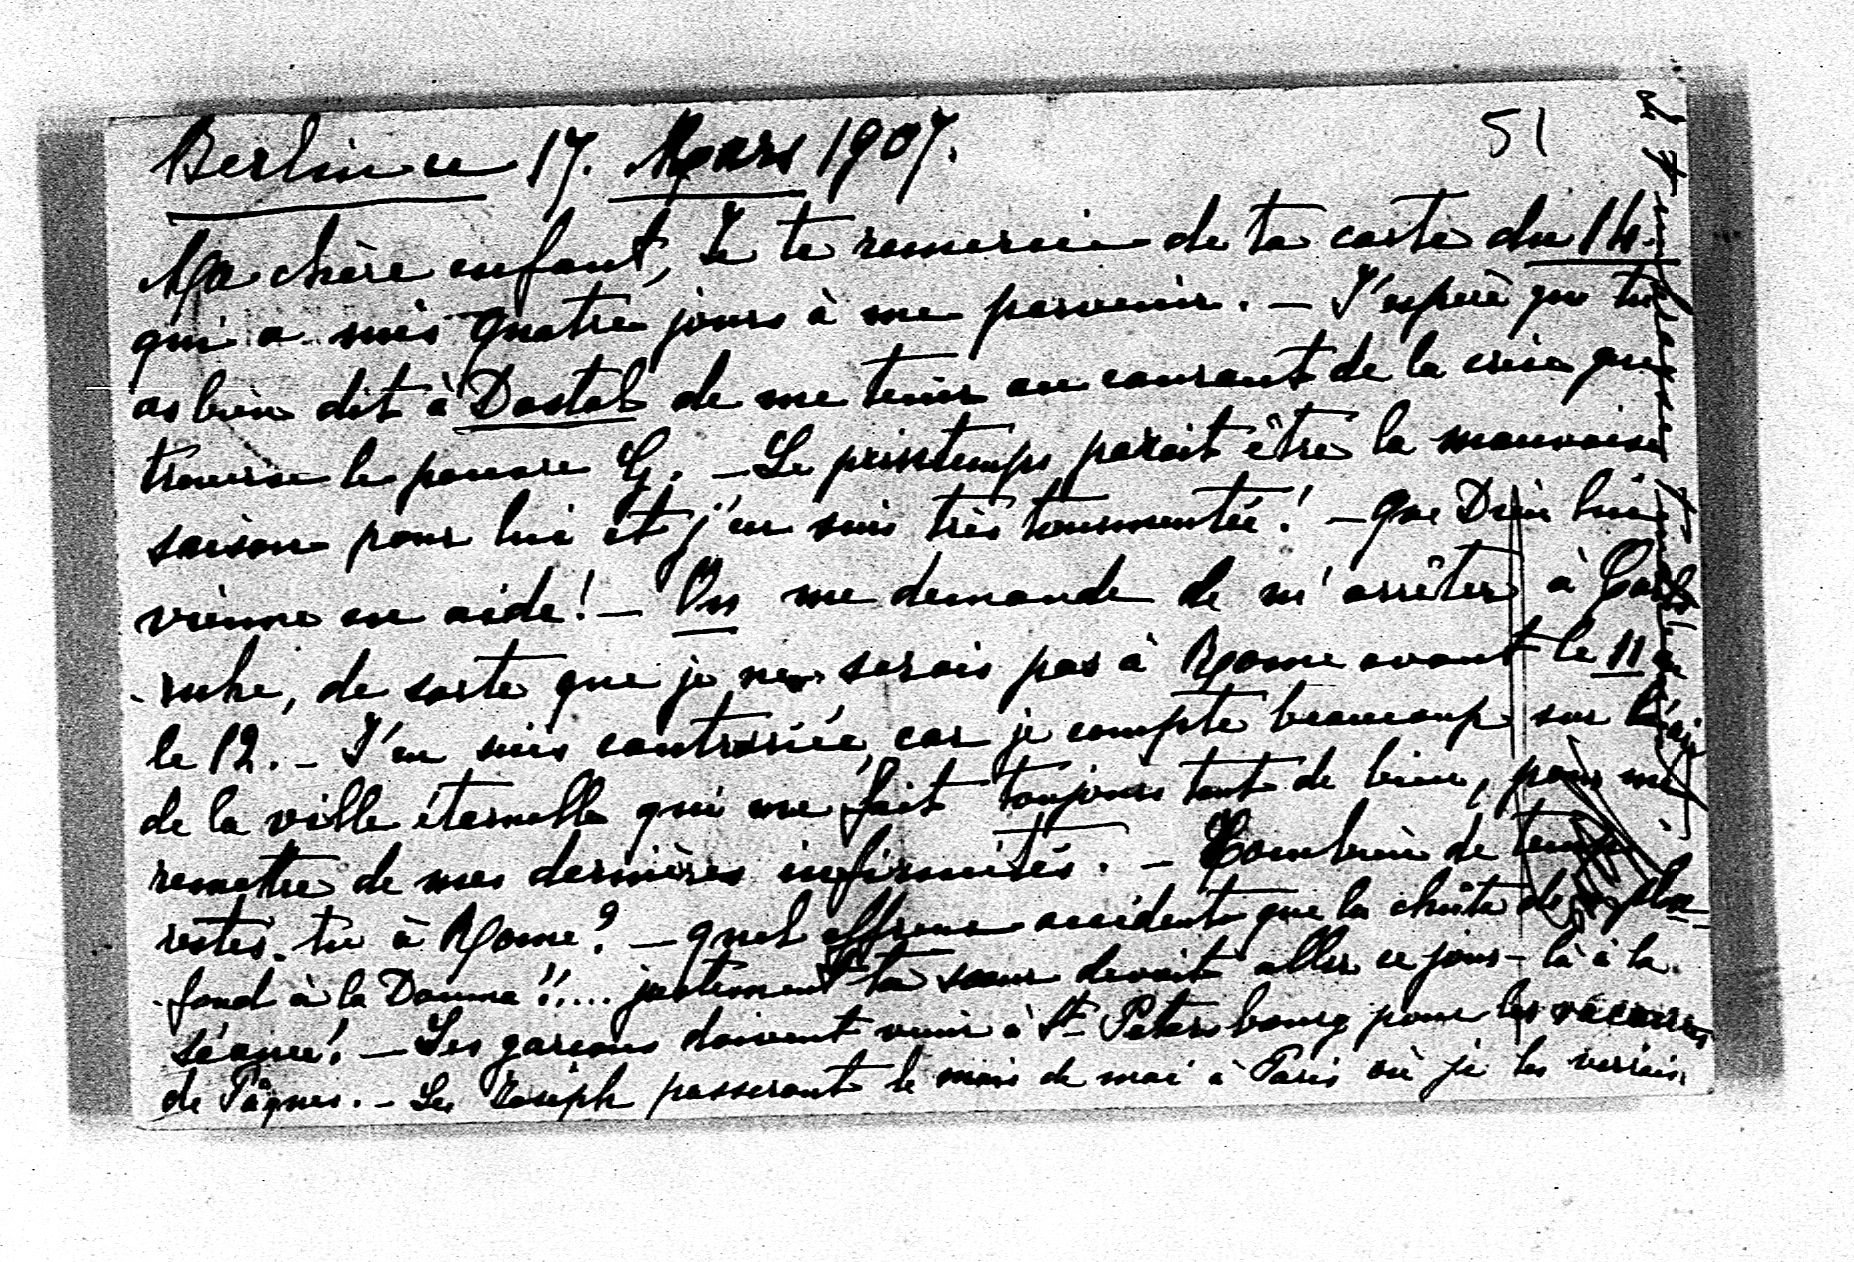 51
Berlin ce 17. Mars 1907.
Ma chère enfant, Je te remercie de ta carte du 14.
qui a mis quatre jours à me parvenir. — J'espère que tu
as bien dit à Dostal de me tenir au courant de la crise que
traverse le pauvre G. — Le printemps parait être la mauvaise
saison pour lui et j'en suis très tourmentée! — que Dieu lui
vienne en aide! — On me demande de m'arrêter à Carls
-ruhe, de sorte que je ne serais pas à Rome avant le 11 ou
le 12. — J'en suis contrariée, car je compte beaucoup sur l'air
de la ville éternelle qui me fait toujours tant de bien, pour me
remettre de mes dernières infirmités. — Combien de temps
restes-tu à Rome? — quel affreux accident que la chûte de pla=
-fond à la Douma!!.... justement ta sœur devait aller ce jour-là à la
séance! — Les garçons doivent venir à St Petersbourg pour les vacances
de Pâques. — Les Joseph passeront le mois de mai à Paris où je les verrais.